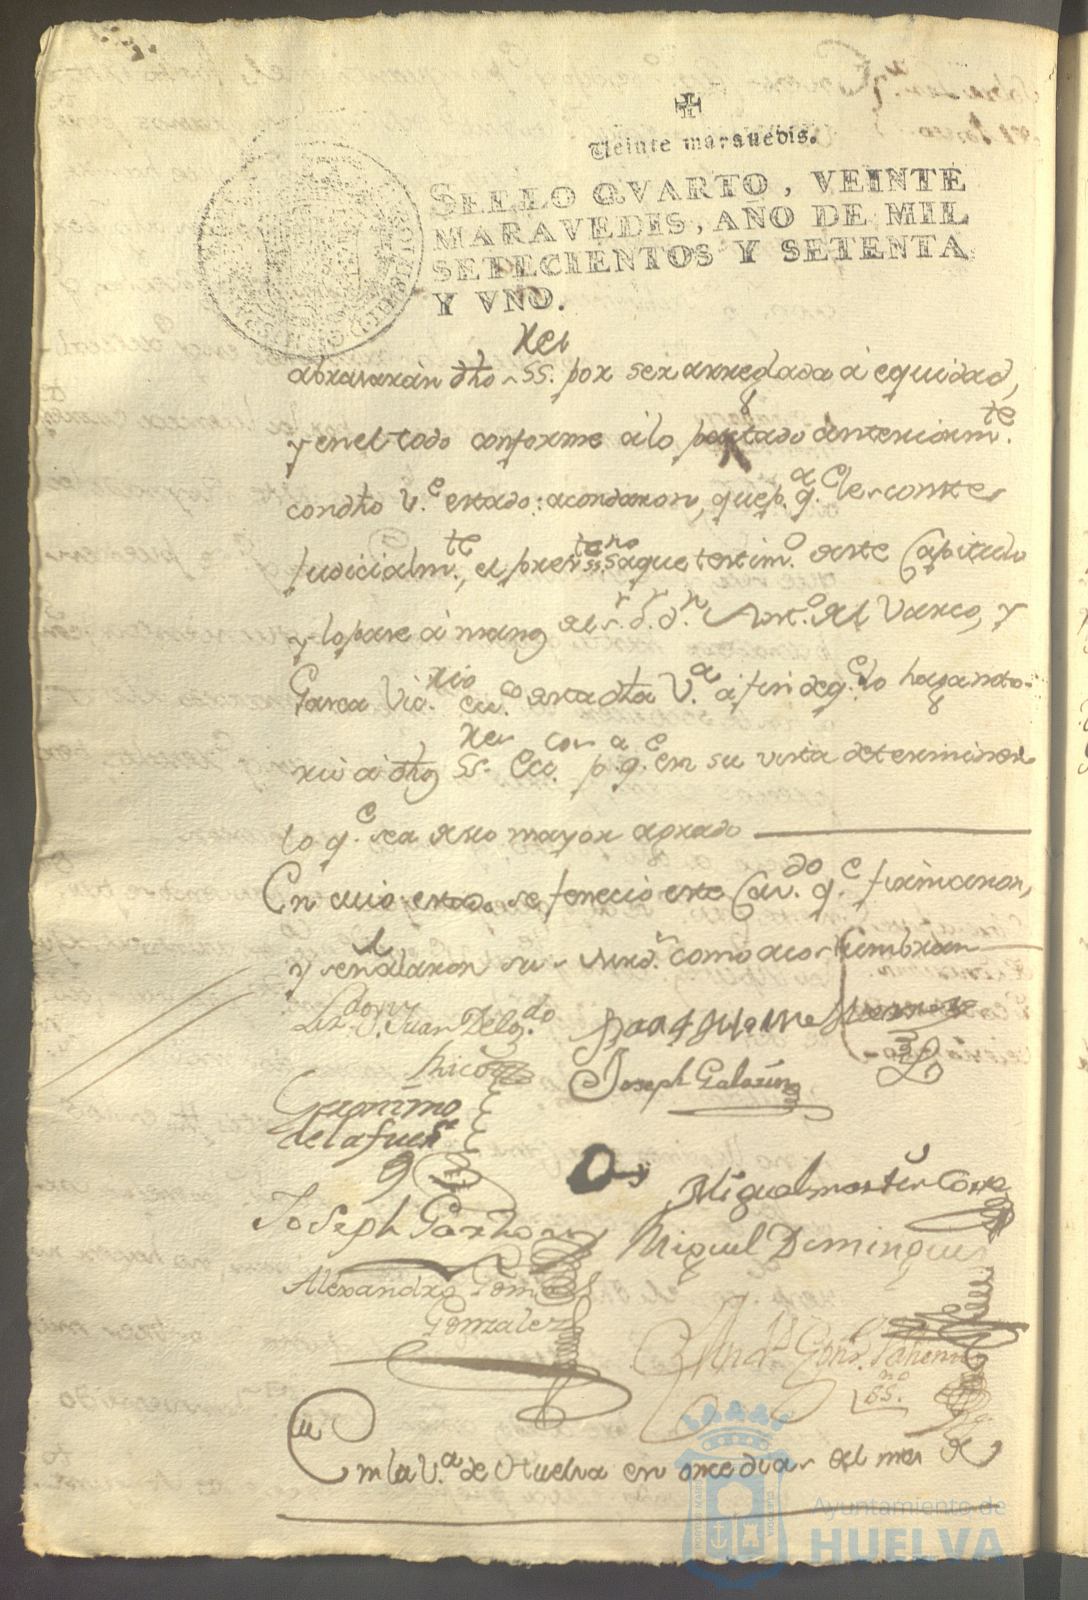 Veinte marauedis.
SELLO QVARTO, VEINTE
MARAVEDIS, AÑO DE MIL
SETECIENTOS Y SETENTA
Y VNO.
abrazarán dho ss.res por ser arreglada á equidad,
y en el todo conforme á lo pactado anteriorm.te
con dho V.e estado: acordaron, que p.a q.e les conste
Judicialm.te, el presste ss.no saque testim.o deste Capitulo
y lo pase á manos del s.r d.r d.n Ant.o del Varco, y
Garcia Vic.rio ecc.co desta dha V.a á fin de q.e lo haga noto-
rio á dhos ss.res Ecc.cos p.a q.e en su vista determinen
lo q.e sea desu mayor agrado
En cuio estado se feneció este Cav.do q.e firmaron,
y señalaron sus merd.s como acostumbran
Liz.do D.n Juan Delg.do
Rico
Joseph Galarin
Geronimo
de la fuente
Miguel martin Corra
Joseph Garzon
Miguel Dominguez
Alexandro Gomez
Gonzalez
ss.no
En la V.a de Huelva en once dias del mes de
Ayuntamiento de
HUELVA